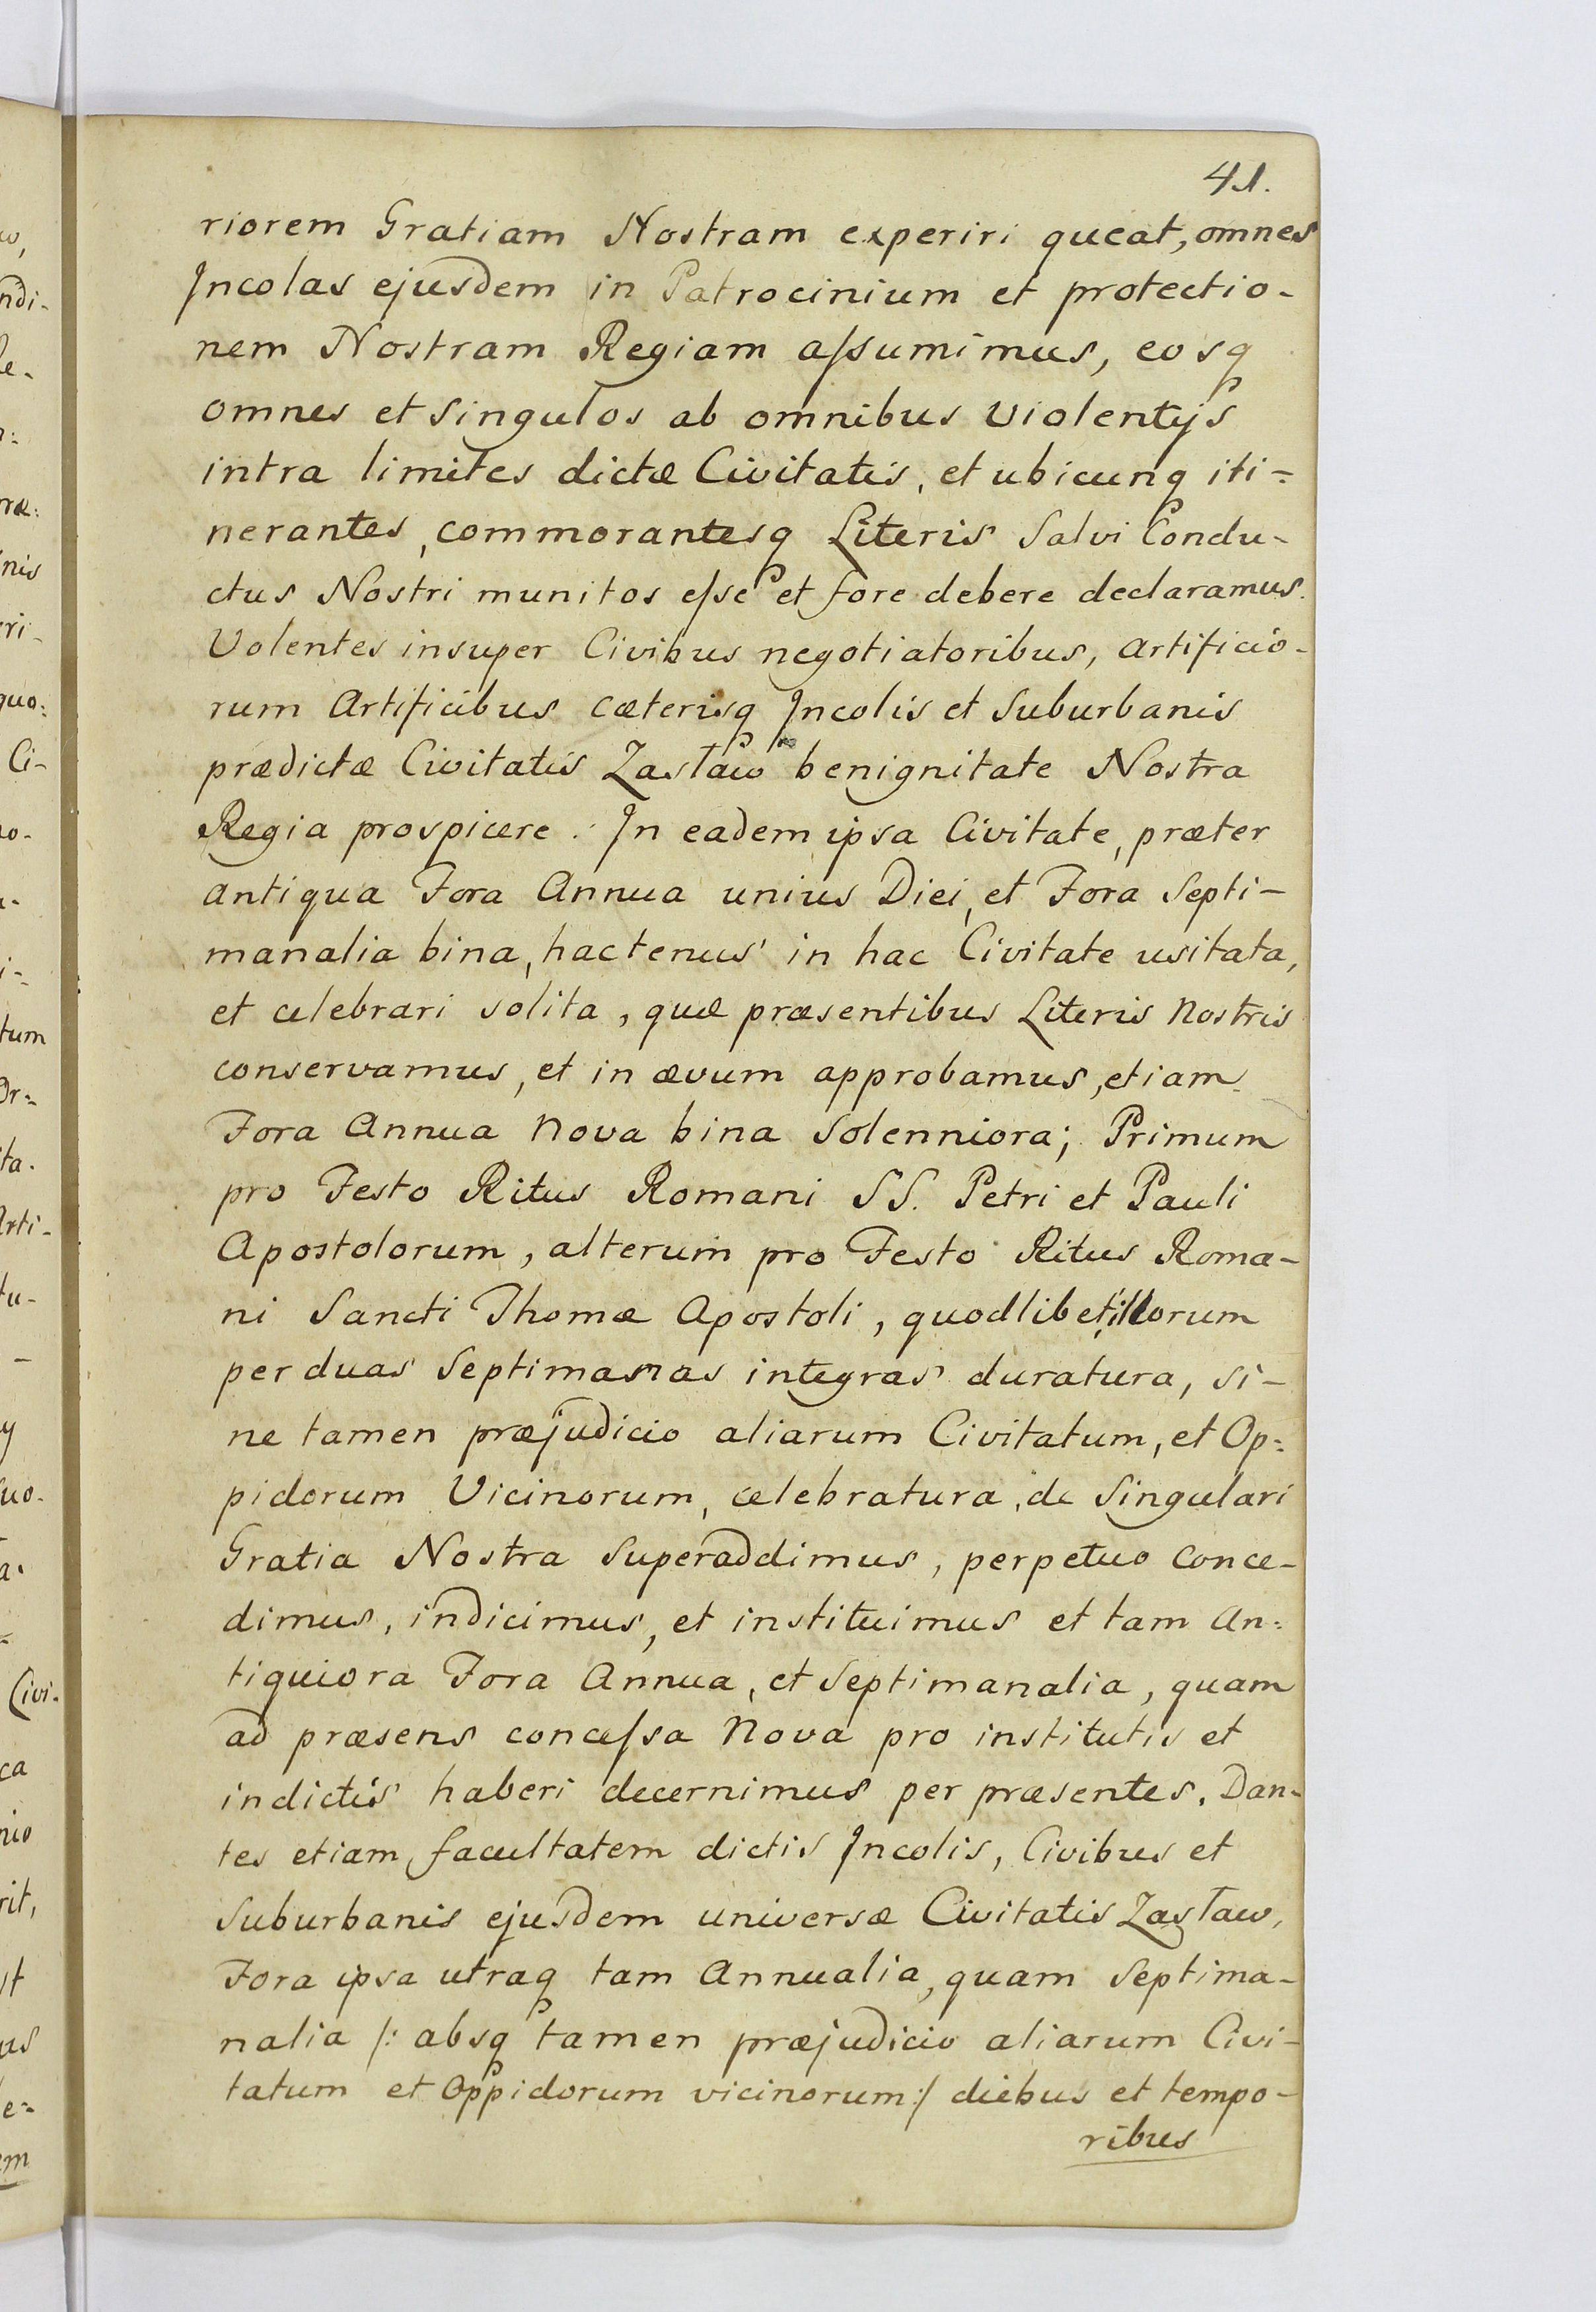 41.
riorem Gratiam Nostram experiri queat, omnes
Incolas ejusdem in Patrocinium et protectio-
nem Nostram Regiam aſsumimus, eosq
omnes et singulos ab omnibus violentijs
intra limites dictæ Civitatis, et ubicunq iti=
nerantes, commorantesq Literis Salvi Condu-
ctus Nostri munitos eſse et fore debere declaramus.
Volentes insuper Civibus negotiatoribus, Artificio-
rum Artificibus cæterisq Incolis et Suburbanis
prædictæ Civitatis Zasław benignitate Nostra
Regia prospicere. In eadem ipsa Civitate, præter
antiqua Fora Annua unius Diei, et Fora Septi-
manalia bina, hactenus in hac Civitate usitata,
et celebrari solita, quæ præsentibus Literis Nostris
conservamus, et in ævum approbamus, etiam
Fora Annua Nova bina Solenniora; Primum
pro Festo Ritus Romani SS. Petri et Pauli
Apostolorum, alterum pro Festo Ritus Roma-
ni Sancti Thomæ Apostoli, quodlibet illorum
per duas Septimanas integras duratura, si-
ne tamen præjudicio aliarum Civitatum, et Op=
pidorum Vicinorum, celebratura, de Singulari
Gratia Nostra Superaddimus, perpetuo conce-
dimus, indicimus, et instituimus et tam An=
tiquiora Fora Annua, et Septimanalia, quam
ad præsens conceſsa Nova pro institutis et
indictis haberi decernimus per præsentes. Dan=
tes etiam facultatem dictis Incolis, Civibus et
Suburbanis ejusdem universæ Civitatis Zasław,
Fora ipsa utraq tam Annualia, quam Septima-
nalia /: absq tamen præjudicio aliarum Civi-
tatum et Oppidorum vicinorum:/ diebus et tempo-
ribus